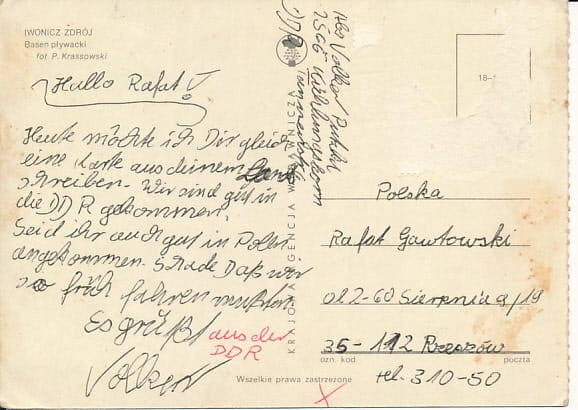 IWONICZ ZDRÓJ
Basen pływacki
fot. P. Krassowski
Hallo Rafał!
Heute möchte ich Dir gleich
eine Karte aus deinem Land
schreiben. Wir sind gut in
die DDR gekommen.
Seid ihr auch gut in Polen
angekommen. Schade Daß wir
so früh fahren mußten.
Es grüßt aus der
DDR
Volker
Wszelkie prawa zastrzeżone
KRAJOWA AGENCJA WYDAWNICZA
Abs Volker
2565 Kühlungsborn
DDR
18-
Polska
Rafał Gawłowski
ol 2-60 Sierpnia 9/19
35-112 Rzeszów
ozn. kod
poczta
tel. 310-50